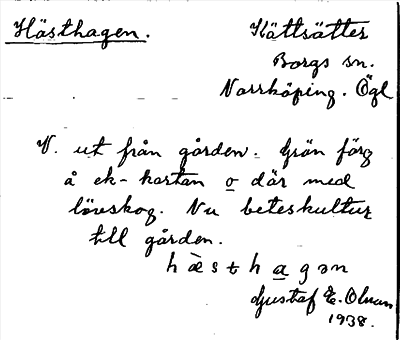 Hästhagen. Kättsätter
Borgs sn.
Norrköping. Ögl
V. ut från gården. Grön färg
å ek-kartan o där med
lövskog. Nu beteskultur
till gården.
hὲsthagən
Gustaf E. Olman
1938.